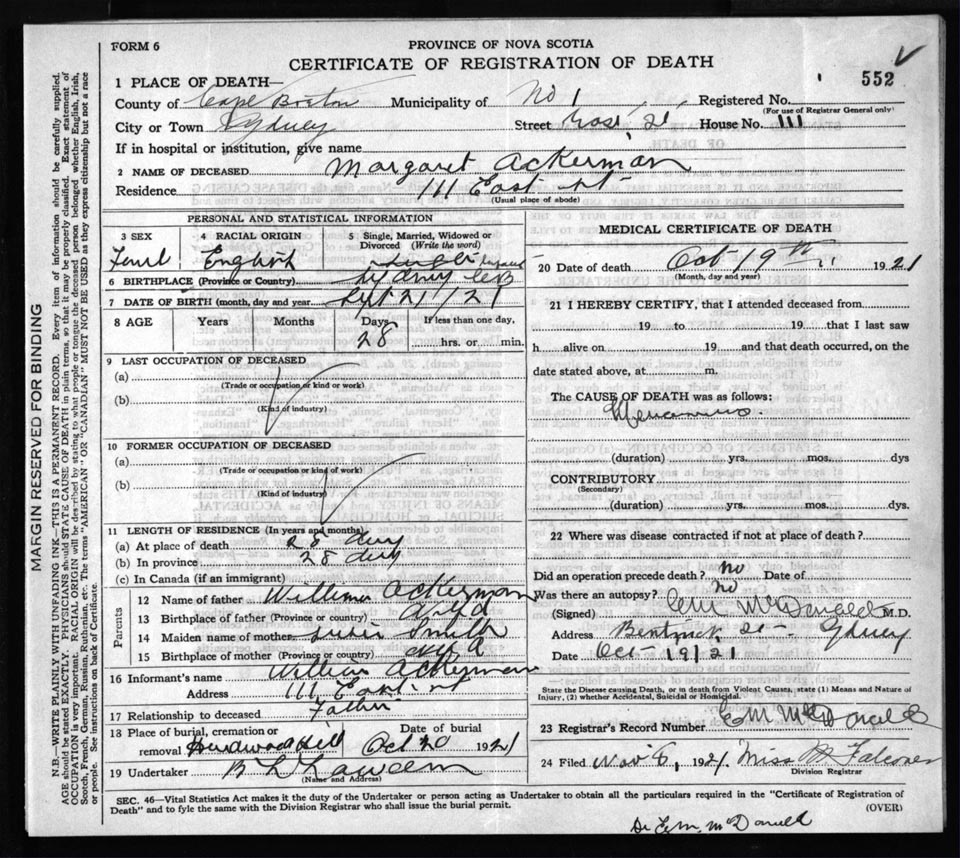 FORM 6
PROVINCE OF NOVA SCOTIA
CERTIFICATE OF REGISTRATION OF DEATH
552
1 PLACE OF DEATH—
County of Cape Breton Municipality of No 1 Registered No.
(For use of Registrar General only)
City or Town Sydney Street East St House No. 111
If in hospital or institution, give name
2 NAME OF DECEASED Margaret Ackerman
Residence 111 East St
(Usual place of abode)
PERSONAL AND STATISTICAL INFORMATION
3 SEX 4 RACIAL ORIGIN 5 Single, Married, Widowed or Divorced (Write the word)
English
6 BIRTHPLACE (Province or Country) Sydney CB
7 DATE OF BIRTH (month, day and year) Sept 21/21
8 AGE Years Months Days If less than one day,
28 hrs. or min.
9 LAST OCCUPATION OF DECEASED
(a)
(Trade or occupation or kind or work)
(b)
(Kind of industry)
10 FORMER OCCUPATION OF DECEASED
(a)
(Trade or occupation or kind of work)
(b)
(Kind of industry)
11 LENGTH OF RESIDENCE (In years and months)
(a) At place of death 28 days
(b) In province 28 days
(c) In Canada (if an immigrant)
Parents
12 Name of father William Ackerman
13 Birthplace of father (Province or country) Nfld
14 Maiden name of mother Susie Smith
15 Birthplace of mother (Province or country)
16 Informant's name William Ackerman
Address 111 East St
17 Relationship to deceased Father
18 Place of burial, cremation or
removal Hardwood Hill Oct 20 1921
19 Undertaker
(Name and Address)
MEDICAL CERTIFICATE OF DEATH
20 Date of death Oct 19th 1921
(Month, day and year)
21 I HEREBY CERTIFY, that I attended deceased from
19 to 19 that I last saw
h alive on 19 and that death occurred, on the
date stated above, at m.
The CAUSE OF DEATH was as follows:
(duration) yrs. mos. dys
CONTRIBUTORY
(Secondary)
(duration) yrs. mos. dys.
22 Where was disease contracted if not at place of death?
Did an operation precede death? no Date of
Was there an autopsy? no
(Signed) McDonald M.D.
Address Bentinck St Sydney
Date Oct 19/21
State the Disease causing Death, or in death from Violent Causes, state (1) Means and Nature of
Injury, (2) whether Accidental, Suicidal or Homicidal.
23 Registrar's Record Number McDonald
24 Filed Nov 6, 1921 Miss M Falconer
Division Registrar
SEC. 46—Vital Statistics Act makes it the duty of the Undertaker or person acting as Undertaker to obtain all the particulars required in the "Certificate of Registration of
Death" and to fyle the same with the Division Registrar who shall issue the burial permit. (OVER)
Dr McDonald
MARGIN RESERVED FOR BINDING
N.B.—WRITE PLAINLY WITH UNFADING INK—THIS IS A PERMANENT RECORD. Every item of information should be carefully supplied.
AGE should be stated EXACTLY. PHYSICIANS should STATE CAUSE OF DEATH in plain terms, so that it may be properly classified. Exact statement of
OCCUPATION is very important. RACIAL ORIGIN will be described by stating to what people or tongue the deceased person belonged whether English, Irish,
Scotch, French, German, Russian, Ruthenian, etc. The terms "AMERICAN" OR "CANADIAN" MUST NOT BE USED as they express citizenship but not a race
or people. See instructions on back of Certificate.